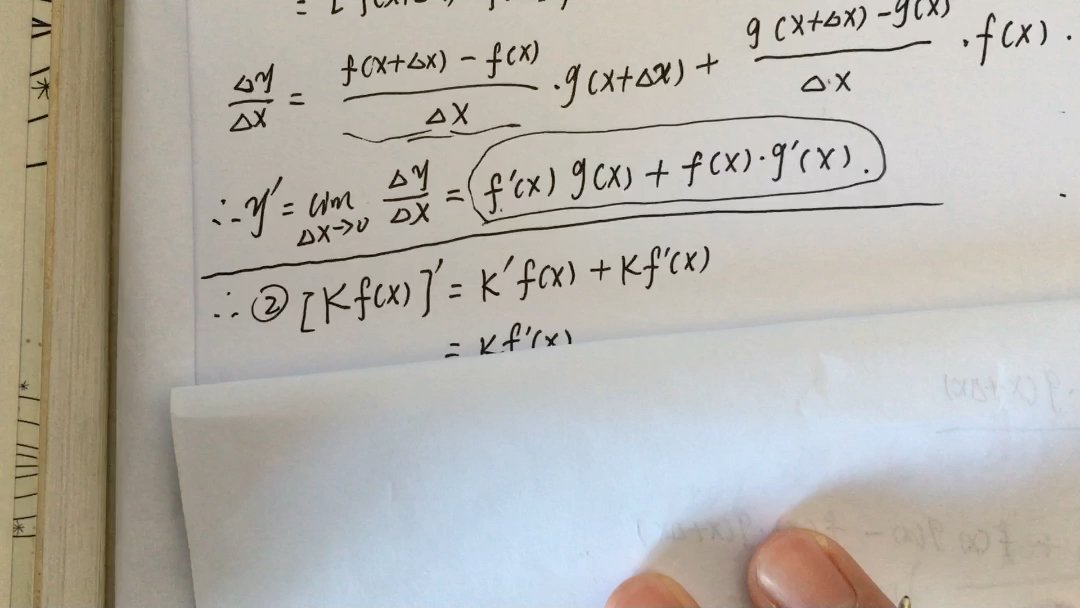 Δy/Δx = f(x+Δx) - f(x)/Δx · g(x+Δx) + g(x+Δx) - g(x)/Δx · f(x).
∴ y' = lim Δx→0 Δy/Δx = f'(x) g(x) + f(x)·g'(x).
∴ ② [Kf(x)]' = K'f(x) + Kf'(x)
= Kf'(x)